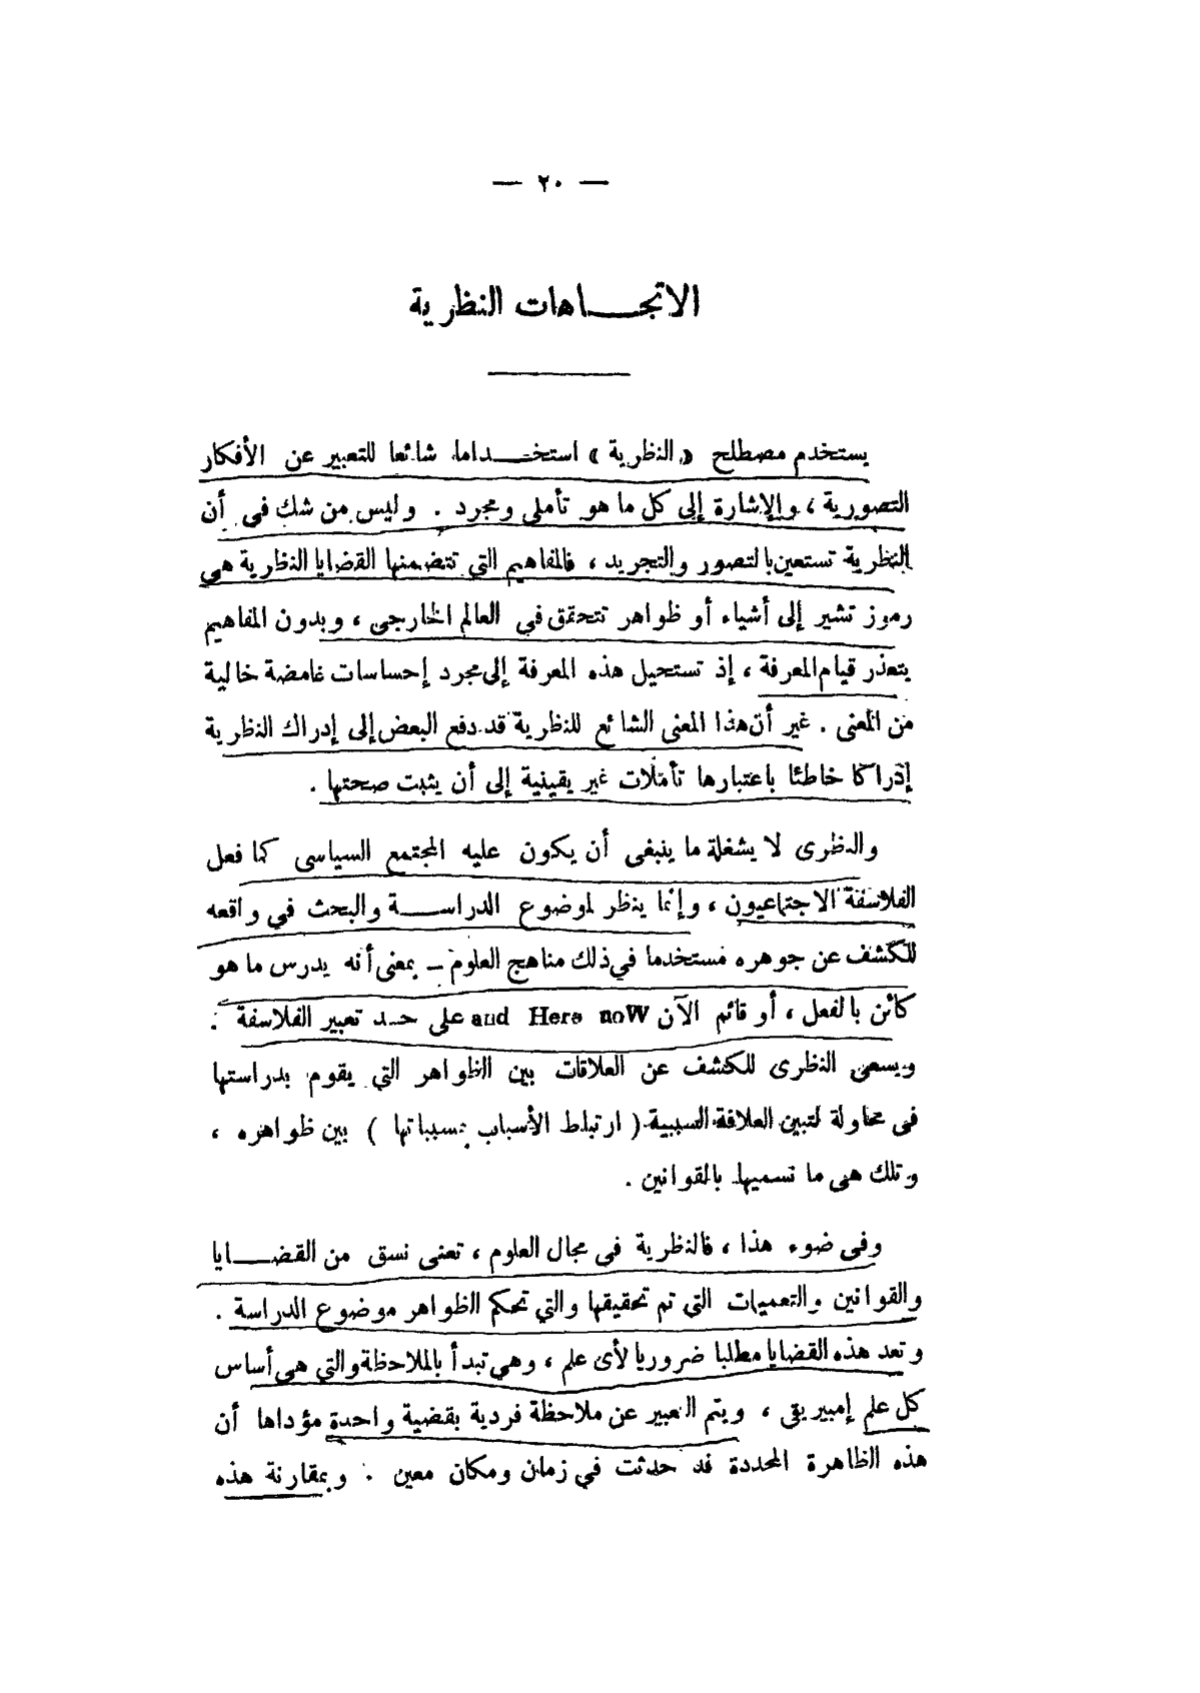 — ٢٠ —
الاتجـــاهات النظرية
يستخدم مصطلح « النظرية » استخـــداما شائعا للتعبير عن الأفكار
التصورية ، والإشارة إلى كل ما هو تأملى ومجرد . وليس من شك فى أن
النظرية تستعين بالتصور والتجريد ، فالمفاهيم التي تتضمنها القضايا النظرية هى
رموز تشير إلى أشياء أو ظواهر تتحقق في العالم الخارجى ، وبدون المفاهيم
يتعذر قيام المعرفة ، إذ تستحيل هذه المعرفة إلى مجرد إحساسات غامضة خالية
من المعنى . غير أن هذا المعنى الشائع للنظرية قد دفع البعض إلى إدراك النظرية
إدراكا خاطئا باعتبارها تأملات غير يقينية إلى أن يثبت صحتها .
والنظرى لا يشغلة ما ينبغى أن يكون عليه المجتمع السياسى كما فعل
الفلاسفة الاجتماعيون ، وإنما ينظر لموضوع الدراســـة والبحث في واقعه
للكشف عن جوهره مستخدما في ذلك مناهج العلوم ــ بمعنى أنه يدرس ما هو
كائن بالفعل ، أو قائم الآن and Here noW على حــد تعبير الفلاسفة .
ويسعى النظرى للكشف عن العلاقات بين الظواهر التي يقوم بدراستها
فى محاولة لتبين العلاقة السببية ( ارتباط الأسباب بمسبباتها ) بين ظواهره ،
وتلك هى ما نسميها بالقوانين .
وفى ضوء هذا ، فالنظرية فى مجال العلوم ، تعنى نسق من القضـــايا
والقوانين والتعميات التى تم تحقيقها والتي تحكم الظواهر موضوع الدراسة .
وتعد هذه القضايا مطلبا ضروريا لأى علم ، وهى تبدأ بالملاحظة والتي هى أساس
كل علم إمبيريقى ، ويتم العبير عن ملاحظة فردية بقضية واحدة مؤداها أن
هذه الظاهرة المحددة قد حدثت في زمان ومكان معين . وبمقارنة هذه